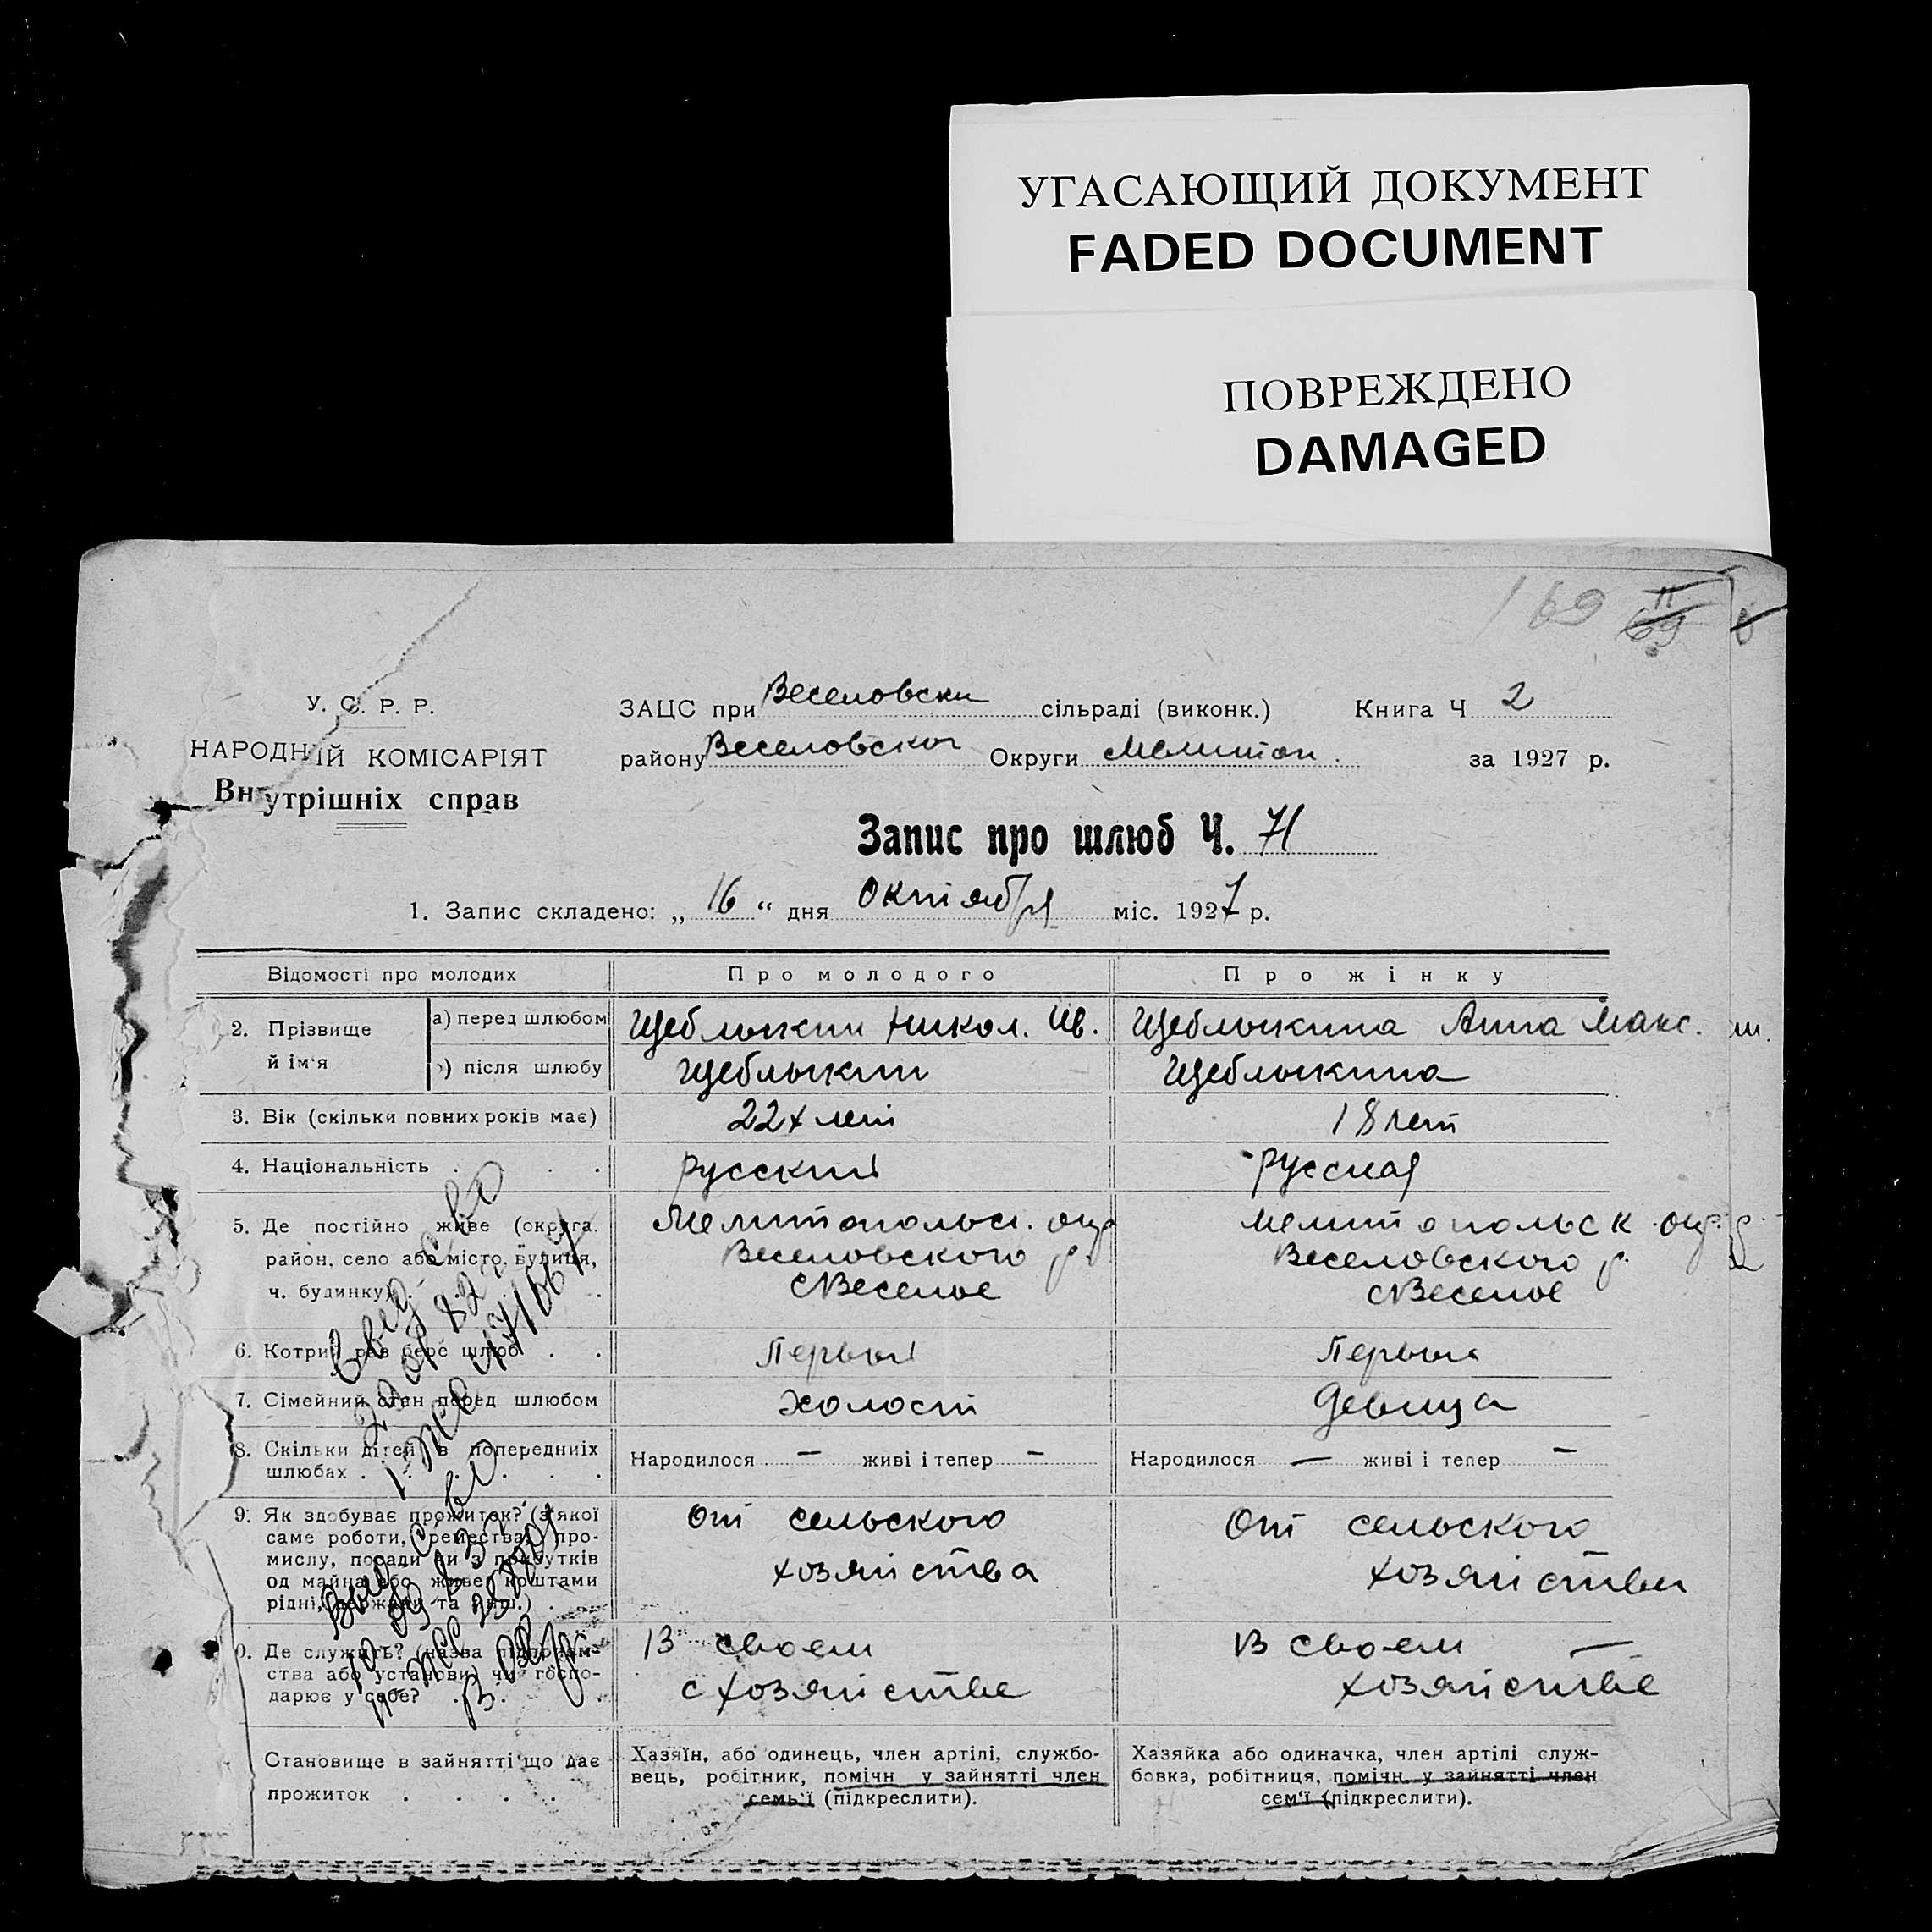 УГАСАЮЩИЙ ДОКУМЕНТ
FADED DOCUMENT
ПОВРЕЖДЕНО
DAMAGED
169
У. С. Р. Р.
НАРОДНІЙ КОМІСАРІЯТ
Внутрішніх справ
ЗАЦС при Веселовски сільраді (виконк.) Книга Ч 2
району Веселовског Округи Мелитоп. за 1927 р.
Запис про шлюб Ч. 71
1. Запис складено: „ 16 “ дня октября міс. 1927 р.
Відомості про молодих
Про молодого
Про жінку
2. Прізвище й ім'я
а) перед шлюбом
Щеблыкин Никол. Ив.
Щеблыкина Анна Макс.
) після шлюбу
Щеблыкин
Щеблыкина
3. Вік (скільки повних років має)
22х лет
18 лет
4. Національність . . . .
русский
русская
5. Де постійно живе (округа,
район, село або місто, вулиця,
ч. будинку) . . . .
Мелитопольск. окр
Веселовского р.
с Веселое
Мелитопольск окр.
Веселовского р.
с Веселое
6. Котрий раз бере шлюб . .
Первый
Первый
7. Сімейний стан перед шлюбом
холост
девица
8. Скільки дітей в попередниіх
шлюбах . . . . . .
Народилося — живі і тепер —
Народилося — живі і тепер —
9. Як здобуває прожиток? (з якої
саме роботи, ремества, про-
мислу, посади чи з прибутків
од майна або живе коштами
рідні, держави та инш.) .
От сельского
хозяйства
От сельского
хозяйства
0. Де служить? (назва підприєм-
ства або установи, чи госпо-
дарює у себе? . . .
В своем
с хозяйстве
В своем —
хозяйстве
Становище в зайнятті що дає
прожиток . . . .
Хазяїн, або одинець, член артілі, службо-
вець, робітник, помічн у зайнятті член
семь'ї (підкреслити).
Хазяйка або одиначка, член артілі служ-
бовка, робітниця, помічн. у зайнятті член
сем'ї (підкреслити).